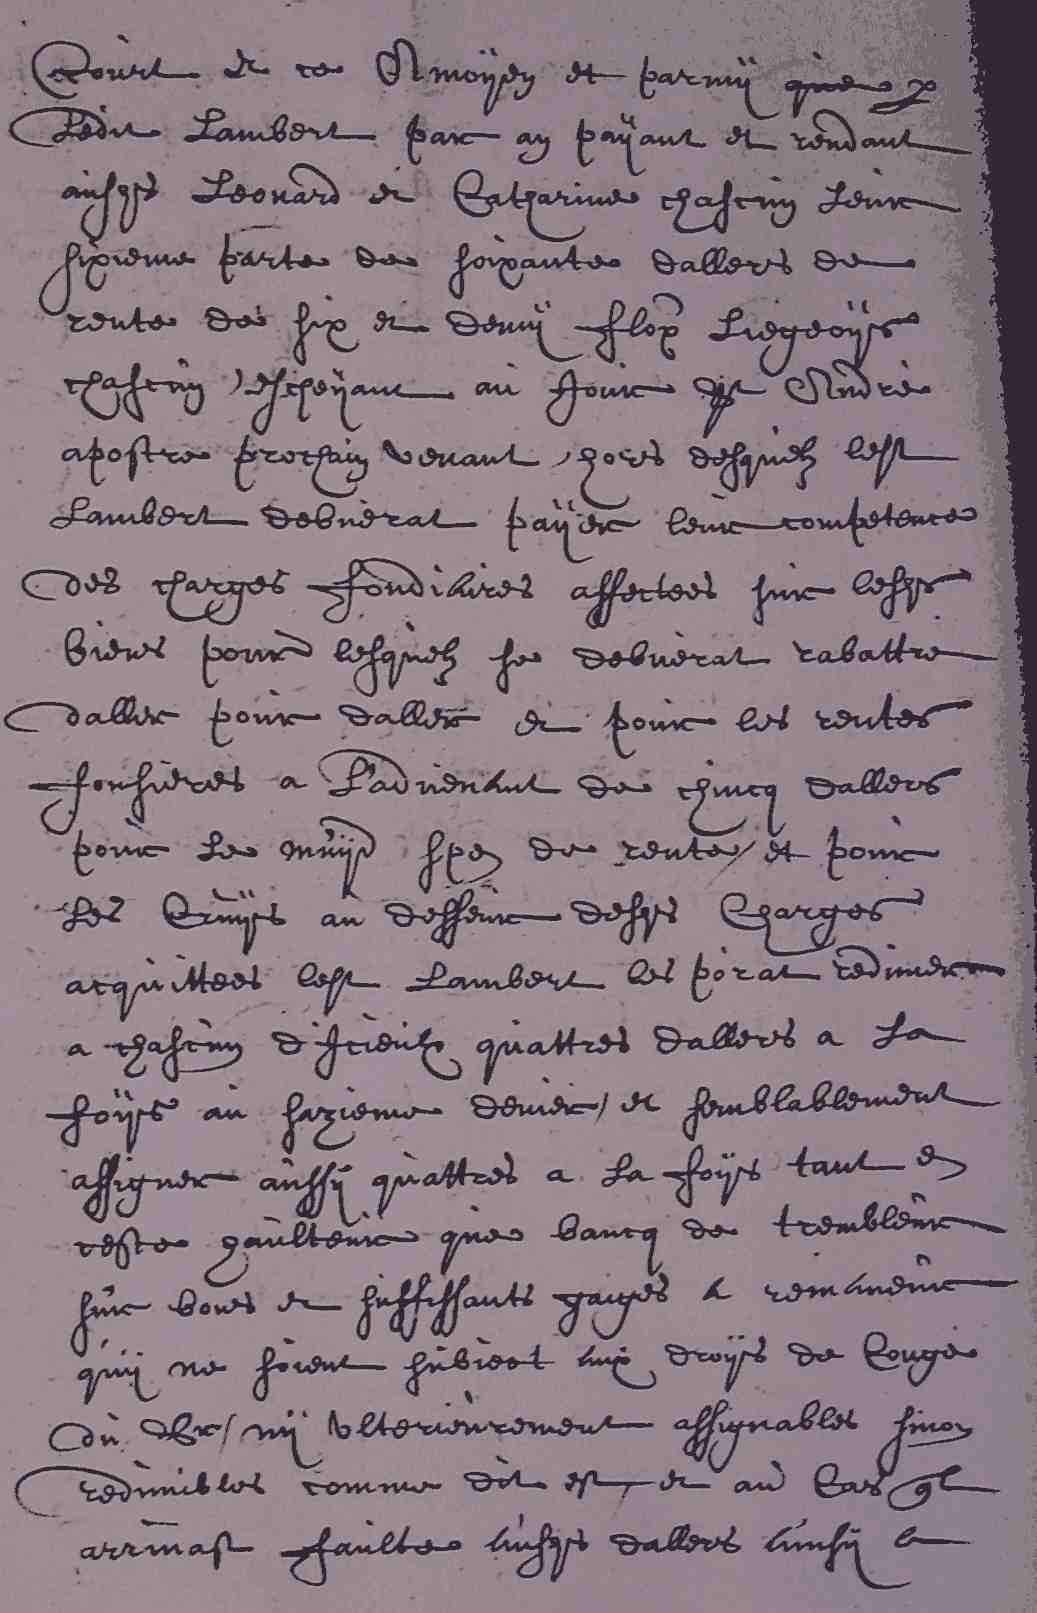 Court et ce Amoÿen et parmÿ que p
Ledit Lambert par an paÿant et rendant
ausqs Leonard et Catharine chascun Leur
sixieme parte de soixante dallers de
rente de six et demÿ flor Liegeoÿs
chascun escheÿant au Jour st Andrè
apostre prochain venant, hors desquelz lest
Lambert debuerat paÿer leur competence
des charges fondilires affectees sur lesqs
biens pour lesquelz se debuerat rabattre
daller pour daller et pour les rentes
fonsieres a L'aduenant de chincq dallers
pour Le muÿd spe de rente, et pour
Les Cruÿs au desseur desqs Charges
acquittees lest Lambert les porat redimer
a chascun d'Jcieulx quattres dallers a La
foÿs au sazieme denier, et semblablement
assigner aussÿ quattres a La foÿs tant en
ceste haulteur que bancq de trembleur
sur bones et suffissants gaiges a remaneur
quÿ ne soient subiect aux droÿs de Couge
du dbr, nÿ Vlterieurement assignables sinon
redimibles comme dit est, et au Cas ql
arriuast faulte ausqs dallers ainsÿ a